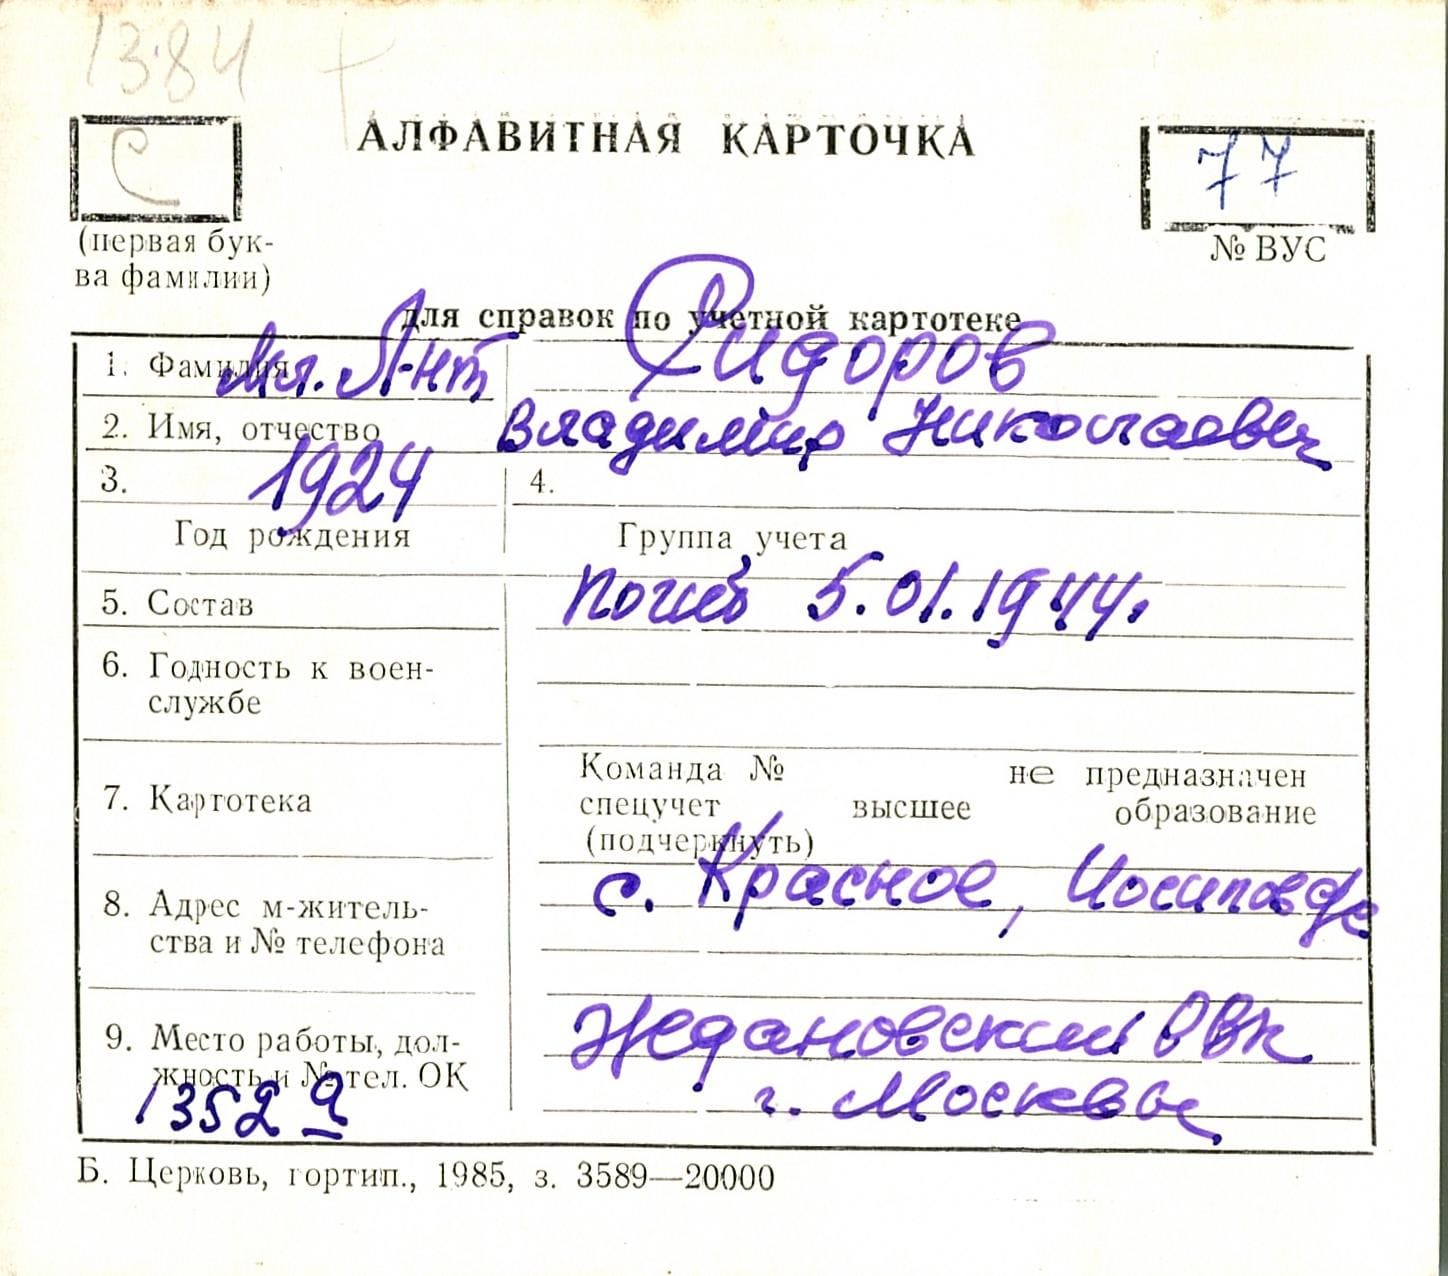 1384
АЛФАВИТНАЯ КАРТОЧКА
С
77
(первая бук-
ва фамилии)
№ ВУС
для справок по учетной картотеке
1. Фамилия Мл. Л-нт Сидоров
2. Имя, отчество Владимир Николаевич
3. 1924
4.
Год рождения
Группа учета
5. Состав погиб 5.01.1944.
6. Годность к воен-
службе
Команда № не предназначен
7. Картотека спецучет высшее образование
(подчеркнуть)
8. Адрес м-житель-
ства и № телефона
с. Красное,
9. Место работы, дол-
жность и № тел. ОК
Ждановский РВК
г. Москвы
13522
Б. Церковь, гортип., 1985, з. 3589—20000